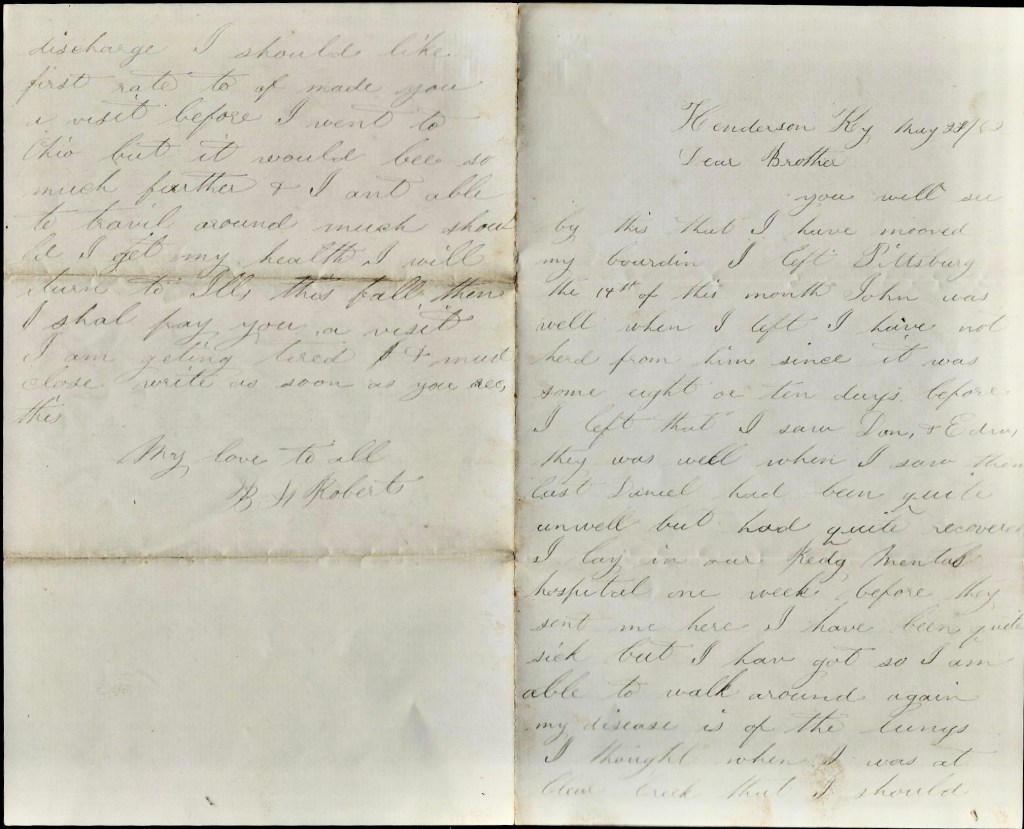 Henderson Ky May
Dear Brother
you will see
by this that I have mooved
my boardin I left Pittsburg
the 14st of this month John was
well when I left I have not
herd from him since it was
some eight or ten days before
I left that I saw Dan, & Edw,
they was well when I saw them
last Daniel had been quite
unwell but had quite recovered
I lay in our Redg mental
hospital one week before they
sent me here I have been quite
sick but I hav got so I am
able to walk around again
my disease is of the lungs
I thought when I was at
Clear Creek that I should
discharge I should like
first rate to of made you
a visit before I went to
Ohio but it would bee so
much further & I ant able
to travil around much shou
ld I get my health I will
return to Ills this fall then
I shal pay you a visit
I am geting tired & must
close write as soon as you rec,
this
My love to all
Roberts